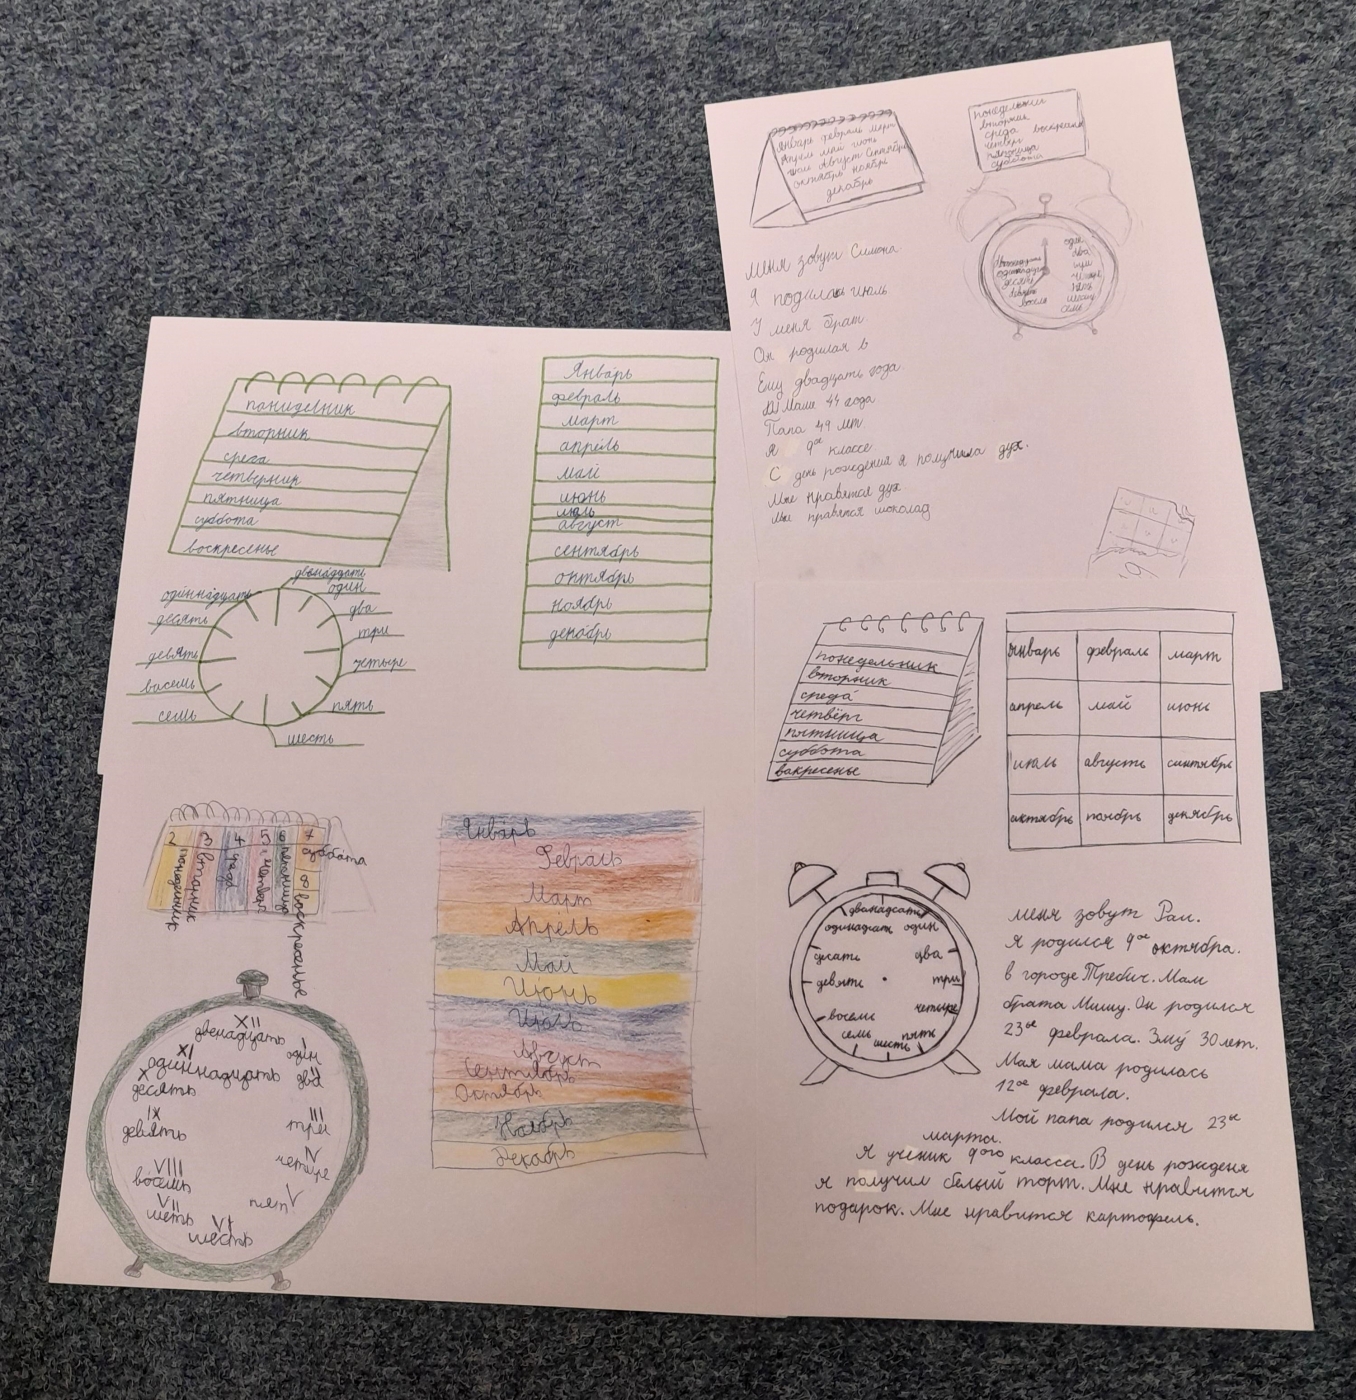 Январь февраль март
Апрель май июнь
июль Август Сентябрь
октябрь ноябрь
декабрь
понедельник
вторник
среда воскресенье
четверг
пятница
суббота
один
два
три
пять
семь
десять
восемь
меня зовут Симона
Я родилась июль
У меня брат
Он родился в
Ему двадцать года
Маме 44 года
Папа 49 лет.
Я 9ое классе
С день рождения я получила дух.
Мне нравятся дух
Мне нравятся шоколад
понидельник
вторник
среда
четверник
пятница
суббота
воскресенье
Январь
февраль
март
апрель
май
июнь
июль
август
сентябрь
октябрь
ноябрь
декабрь
двенадцать
один
два
три
четыре
пять
шесть
семь
васемь
девять
десять
одиннадцать
понедельник
вторник
среда
четвёрг
пятница
суббота
вакресенье
январь февраль март
апрель май июнь
июль августь синтябрь
октябрь ноябрь декабрь
2 3 4 5 6 7
суббота
8
воскресенье
Январь
Февраль
Март
Апрель
Май
Июнь
Июль
Август
Сентябрь
Октябрь
Ноябрь
Декабрь
XII
двенадцать
XI
одиннадцать
I
один
X
десять
II
два
IX
девять
III
три
VIII
восемь
IV
VII
V
VI
шесть
дванадсать
одинадцать один
десать два
девять три
восемь четыре
семь шесть пять
меня зовут Рал.
Я родился 9ое октября.
в городе Требич. Мам
брата Мишу. Он родился
23ое февраля. Эму 30 лет.
Мая мама родилась
12ое февраля.
Мой папа родился 23ое
марта.
Я ученик 9ого класса. В день рожденя
я получил белый торт. Мне нравится
подарок. Мне нравится картофель.